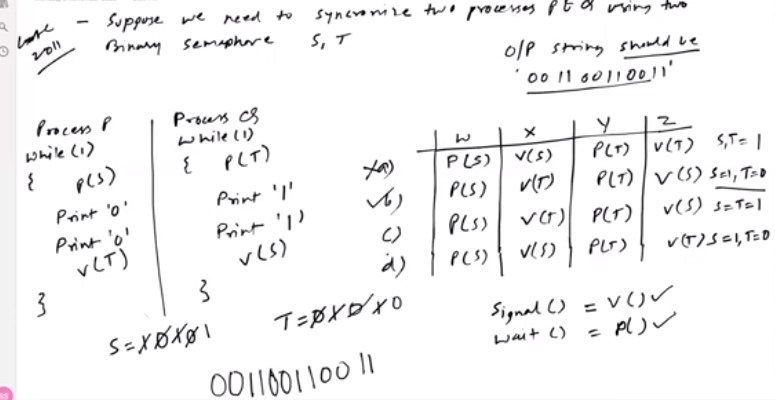 - Suppose we need to syncronize two processes P & Q using two
2011 Binary semaphore S, T
O/P string should be
'001100110011'
Process P
while(1)
{ P(S)
Print '0'
Print '0'
V(T)
}
Process Q
while(1)
{ P(T)
Print '1'
Print '1'
V(S)
}
W X Y Z
xa) P(S) V(S) P(T) V(T) S,T=1
✓b) P(S) V(T) P(T) V(S) S=1, T=0
c) P(S) V(T) P(T) V(S) S=T=1
d) P(S) V(S) P(T) V(T) S=1, T=0
S=1 0 1 0 1
T=0 1 0 1 0
Signal() = V() ✓
wait() = P() ✓
001100110011
55